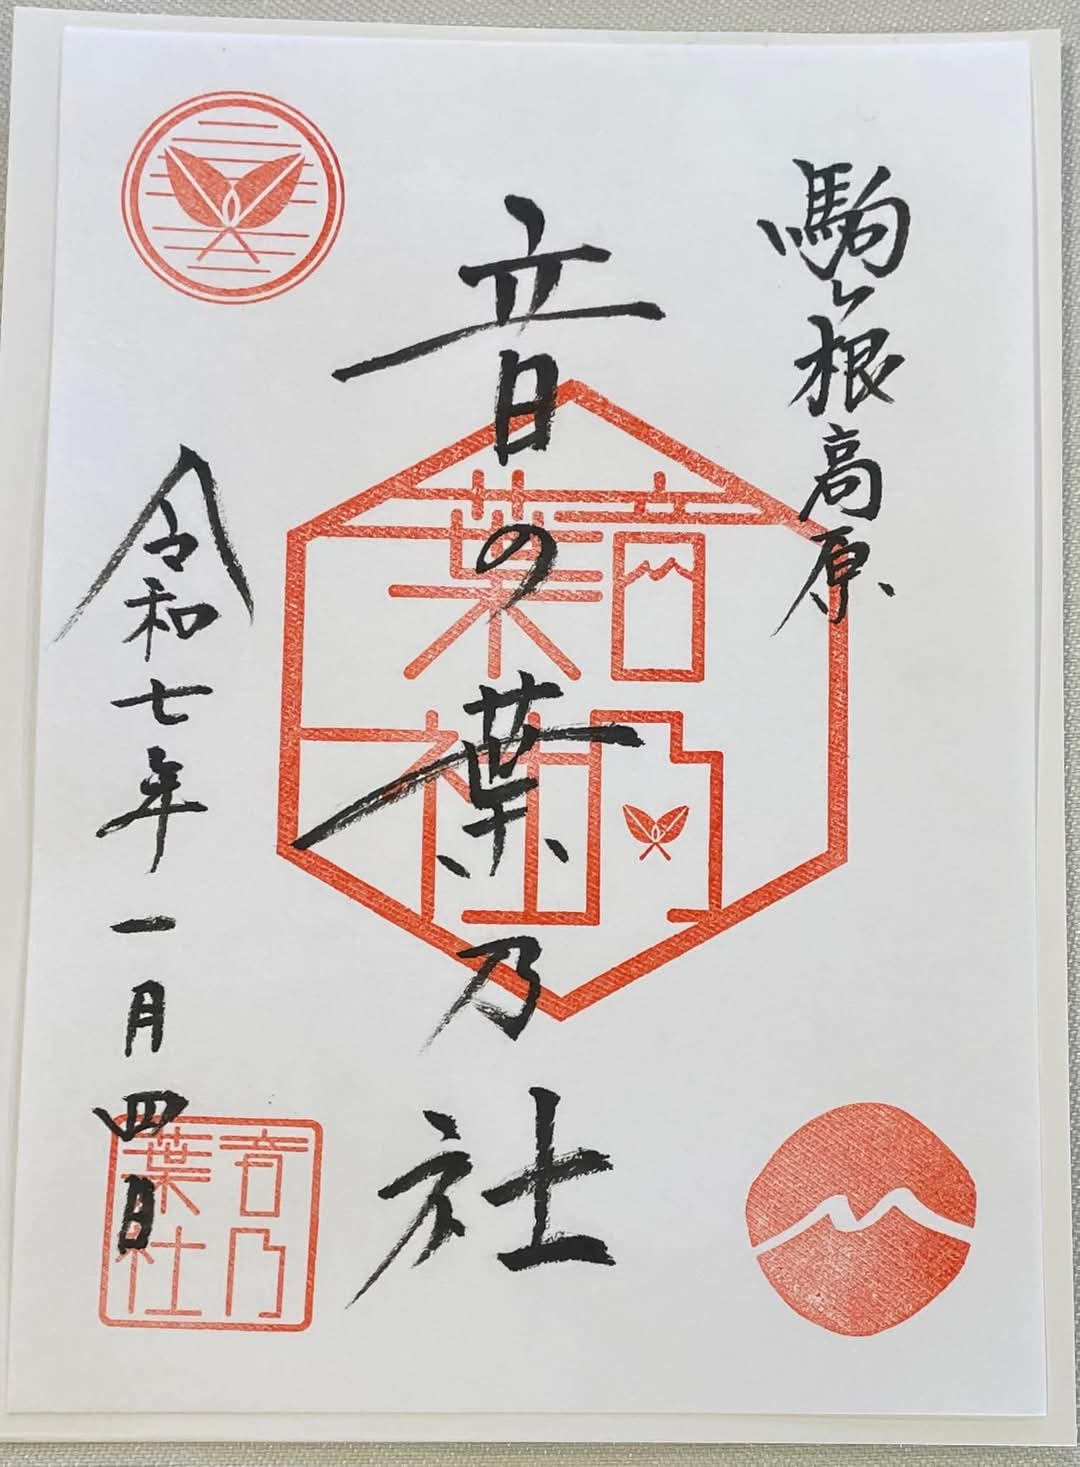 駒ヶ根高原
音の葉乃社
音乃
葉社
令和七年一月四日
音乃
葉社